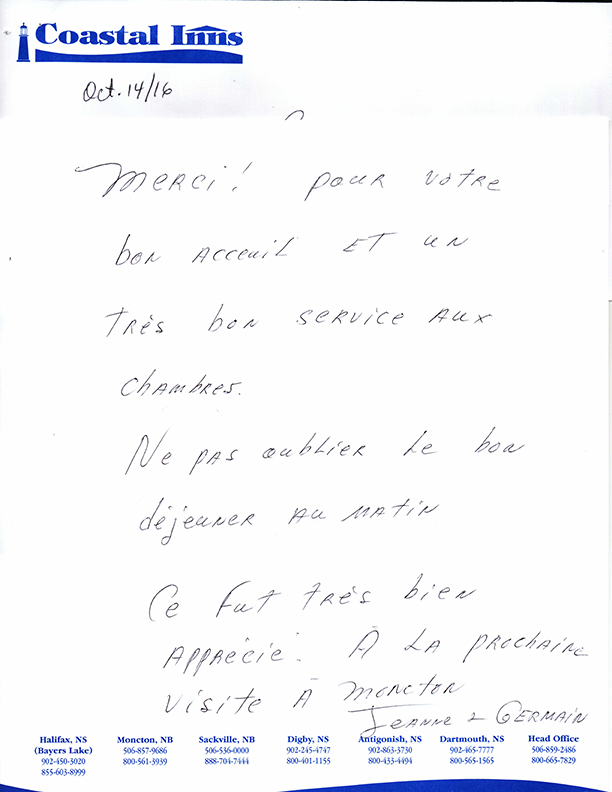 Coastal Inns
Oct. 14/16
Merci! pour votre
bon acceuil et un
très bon service aux
chambres.
Ne pas oublier le bon
déjeuner au matin
Ce fut très bien
apprécié. À la prochaine
visite à Moncton
Jeanne & Germain
Halifax, NS Moncton, NB Sackville, NB Digby, NS Antigonish, NS Dartmouth, NS Head Office
(Bayers Lake) 506-857-9686 506-536-0000 902-245-4747 902-863-3730 902-465-7777 506-859-2486
902-450-3020 800-561-3939 888-704-7444 800-401-1155 800-433-4494 800-565-1565 800-665-7829
855-603-8999